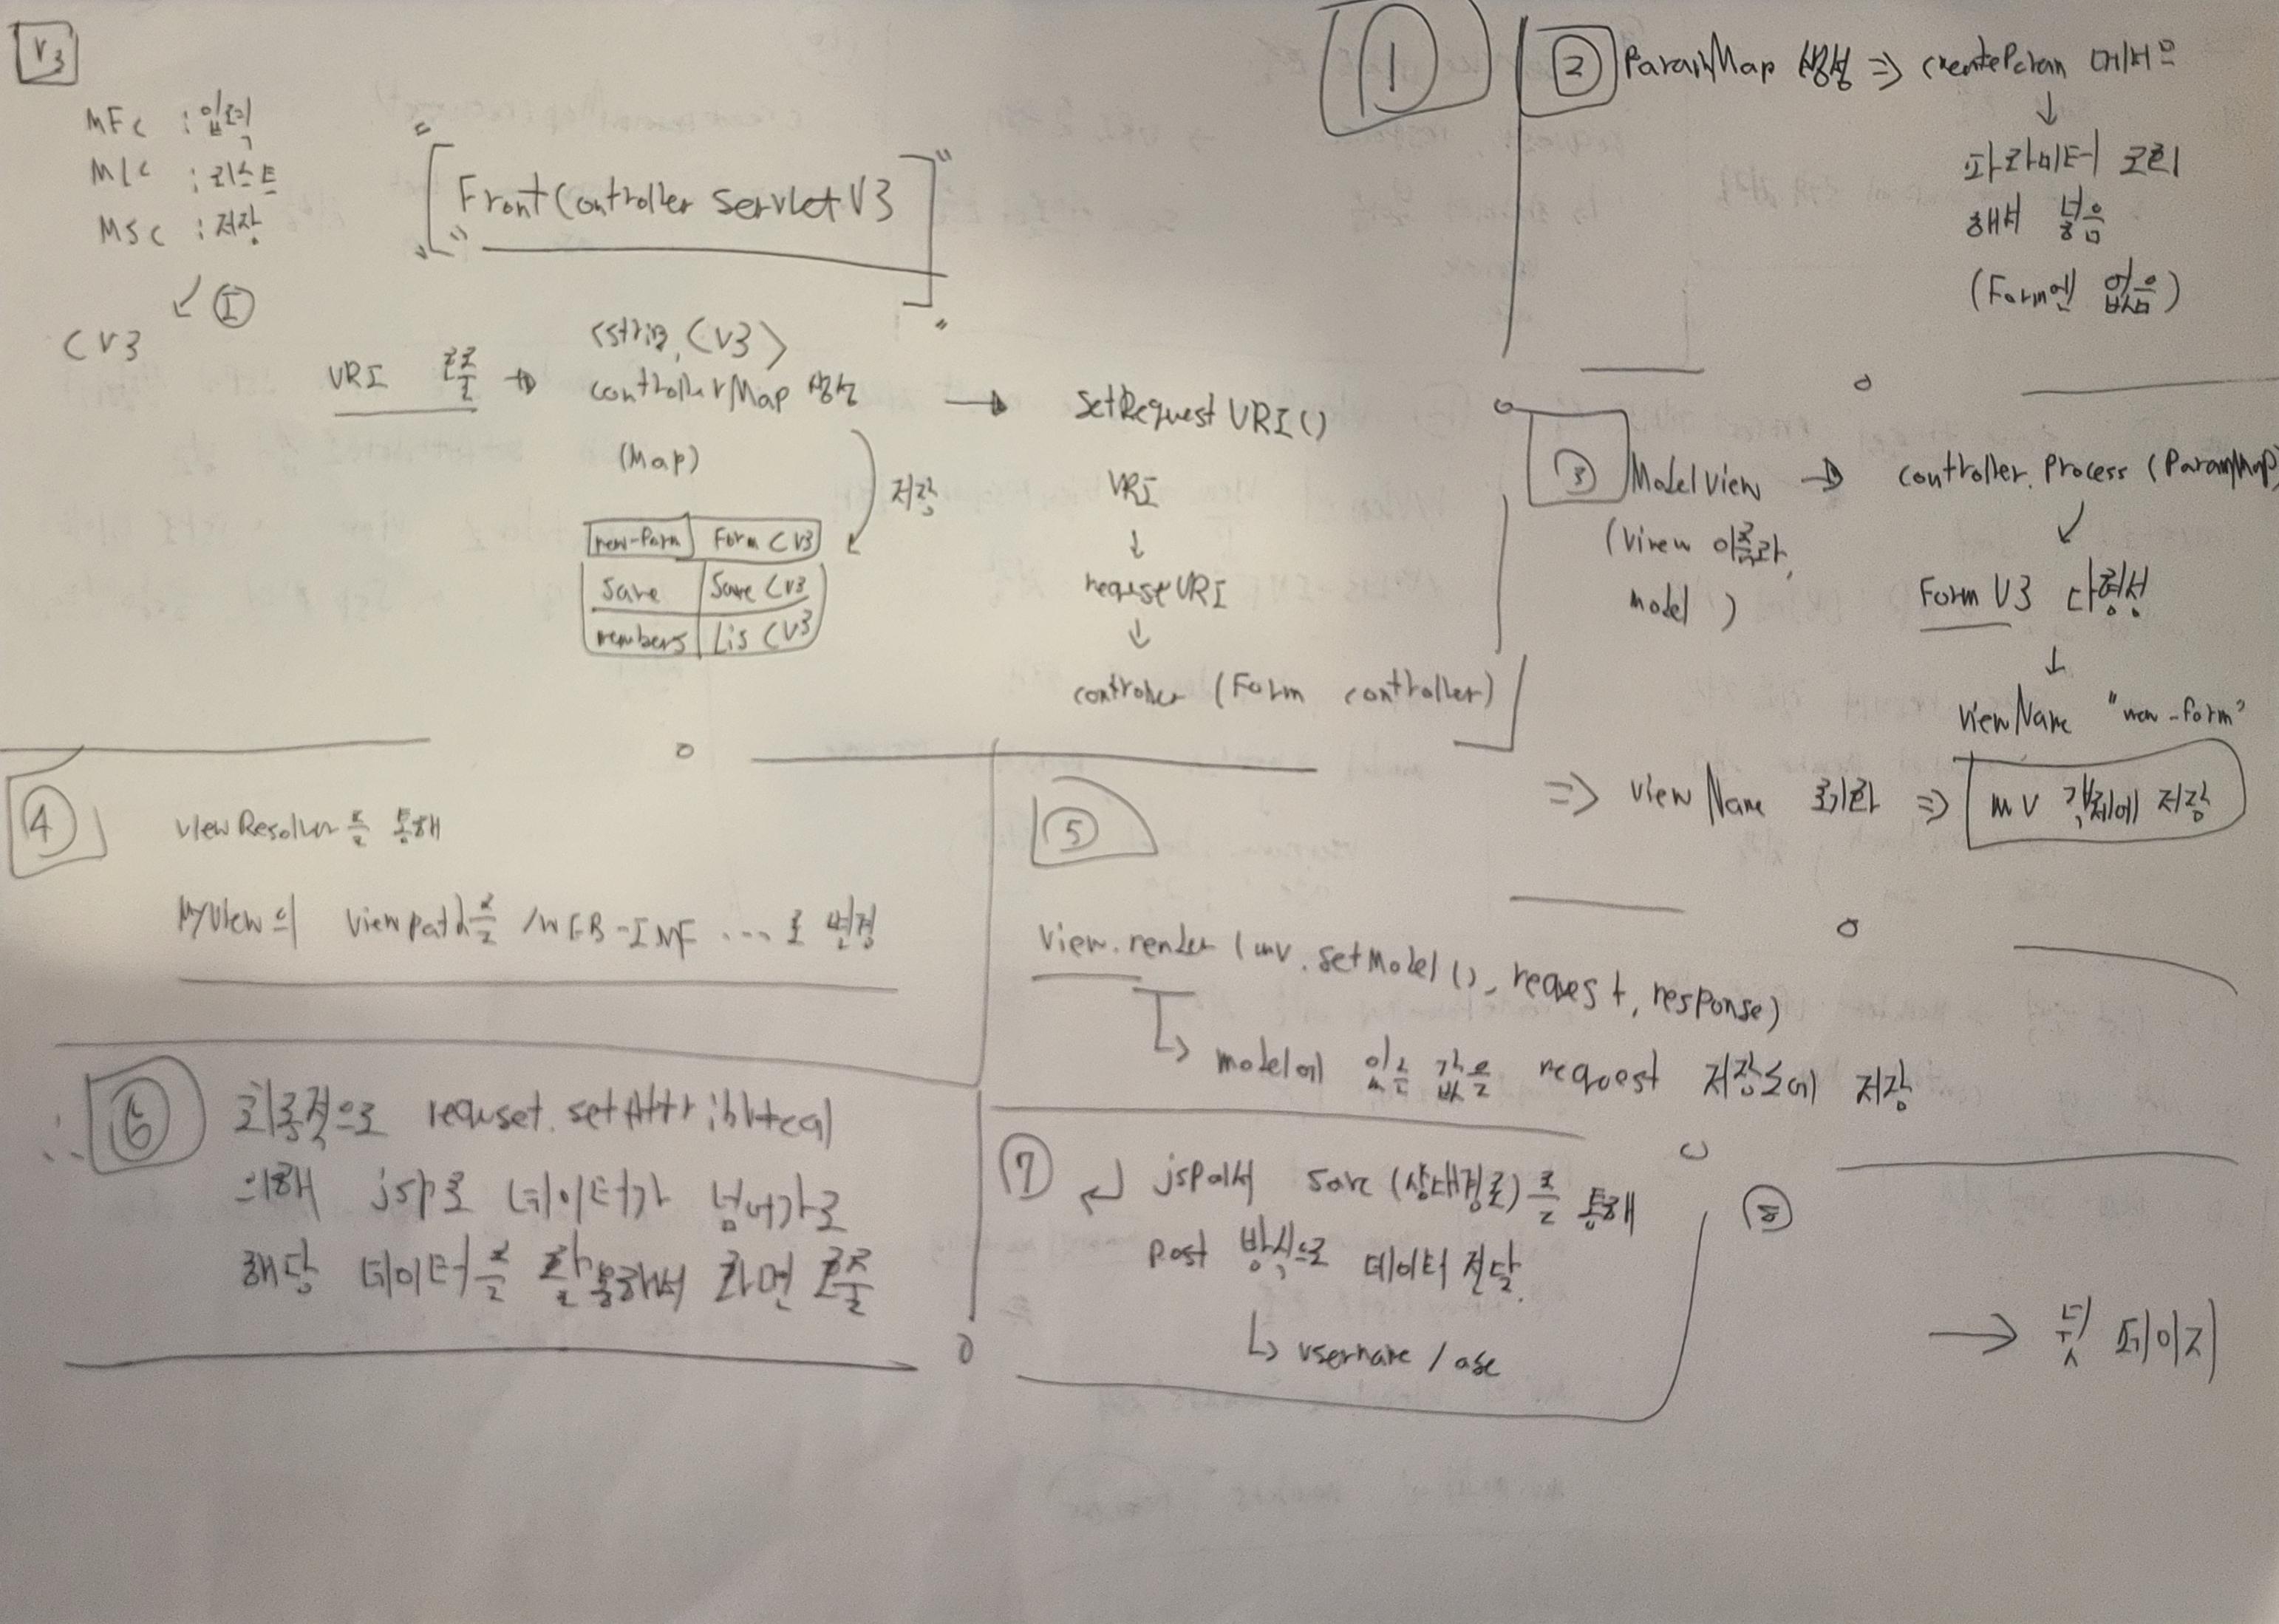 V3
MFC : 입력
MLC : 리스트
MSC : 저장
I
CV3
"[FrontController ServletV3]"
URI 호출 → <string, CV3>
controllerMap 생성 → setRequest URI()
(Map)
저장
new-form | Form CV3
save | Save CV3
members | Lis CV3
URI
↓
requseURI
↓
controller (Form controller)
①
② ParamMap 생성 ⇒ createParam 메서드
↓
파라미터 조회
해서 넣음
(Form엔 없음)
③ ModelView → controller.process (ParamMap)
(Virew 이름과,
model )
Form V3 다형성
↓
viewName "new-form"
⇒ viewName 초기화 ⇒ mv 객체에 저장
④ viewResolver를 통해
MyView의 viewpath를 /WEB-INF ... 로 변경
⑤
View.render (mv.setModel(), request, response)
↳ model에 있는 값을 request 저장소에 저장
∴ ⑥ 최종적으로 requset.setAttribute에
의해 jsp로 데이터가 넘어가고
해당 데이터를 활용해서 화면 호출
⑦ jsp에서 save (상대경로)를 통해
post 방식으로 데이터 전달.
↳ username / age
⑧
→ 뒷 페이지